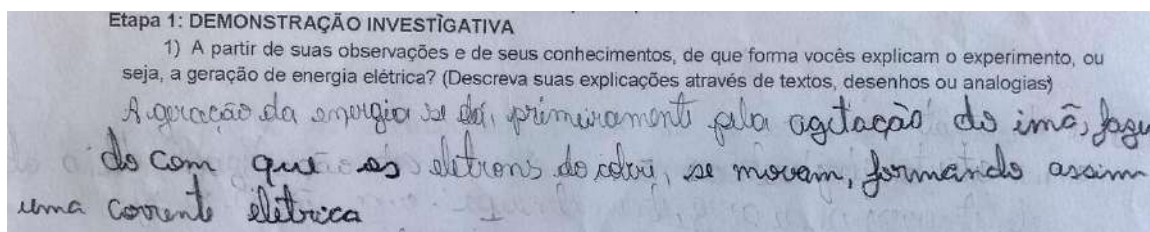 Etapa 1: DEMONSTRAÇÃO INVESTIGATIVA
1) A partir de suas observações e de seus conhecimentos, de que forma vocês explicam o experimento, ou
seja, a geração de energia elétrica? (Descreva suas explicações através de textos, desenhos ou analogias)
A geração da energia se dá, primeiramente pela agitação do imã, fazen
do com que os eletrons do cobre, se movam, formando assim
uma corrente eletrica